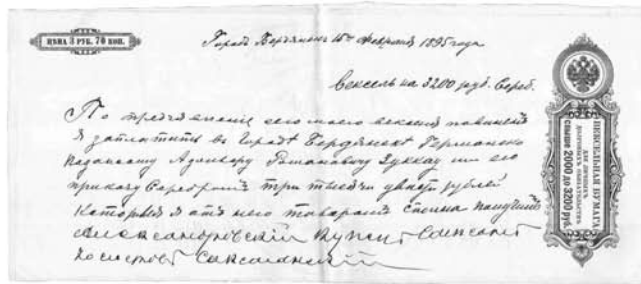 ЦѢНА 3 РУБ. 70 КОП.
Городъ Бердянскъ 15го Февраля 1895 года
Вексель на 3200 руб. Сереб.
По предъявленію сего моего векселя повиненъ
я заплатить въ городѣ Бердянскѣ Германско
Подданному Адольфу Романовичу Зуккау или его
приказу Серебромъ три тысячи двѣсти рублей
которые я отъ него товаромъ сполна получилъ
Александровскій Купецъ
ВЕКСЕЛЬНАЯ БУМАГА
ДЛЯ ЛИЧНЫХЪ
ДОЛГОВЫХЪ ОБЯЗАТЕЛЬСТВЪ
свыше 2000 до 3200 руб.